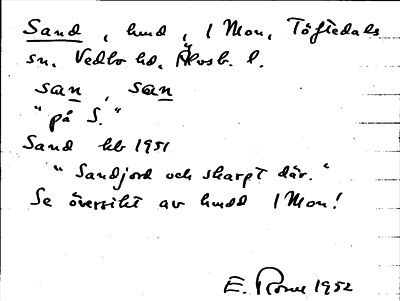 Sand, hmd, 1 Mon, Töftedals
sn. Vedbo hd. Älvsb. l.
san, san
"på S."
Sand hb 1951
"Sandjord och skarpt där."
Se översikt av hmdd 1 Mon!
E. 1952